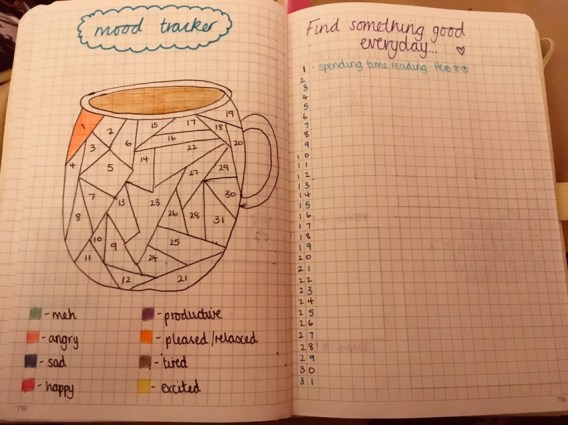 mood tracker
19
1
2
15
17
18
3
6
16
20
22
4
14
5
27
29
7
13
23
30
8
26
28
31
10
9
25
11
24
12
21
- meh
- angry
- sad
- happy
- productive
- pleased/relaxed
- tired
- excited
78
Find something good
everyday...
1 - spending time reading -
2
3
4
5
6
7
8
9
10
11
12
13
14
15
16
17
18
19
20
21
22
23
24
25
26
27
28
29
30
31